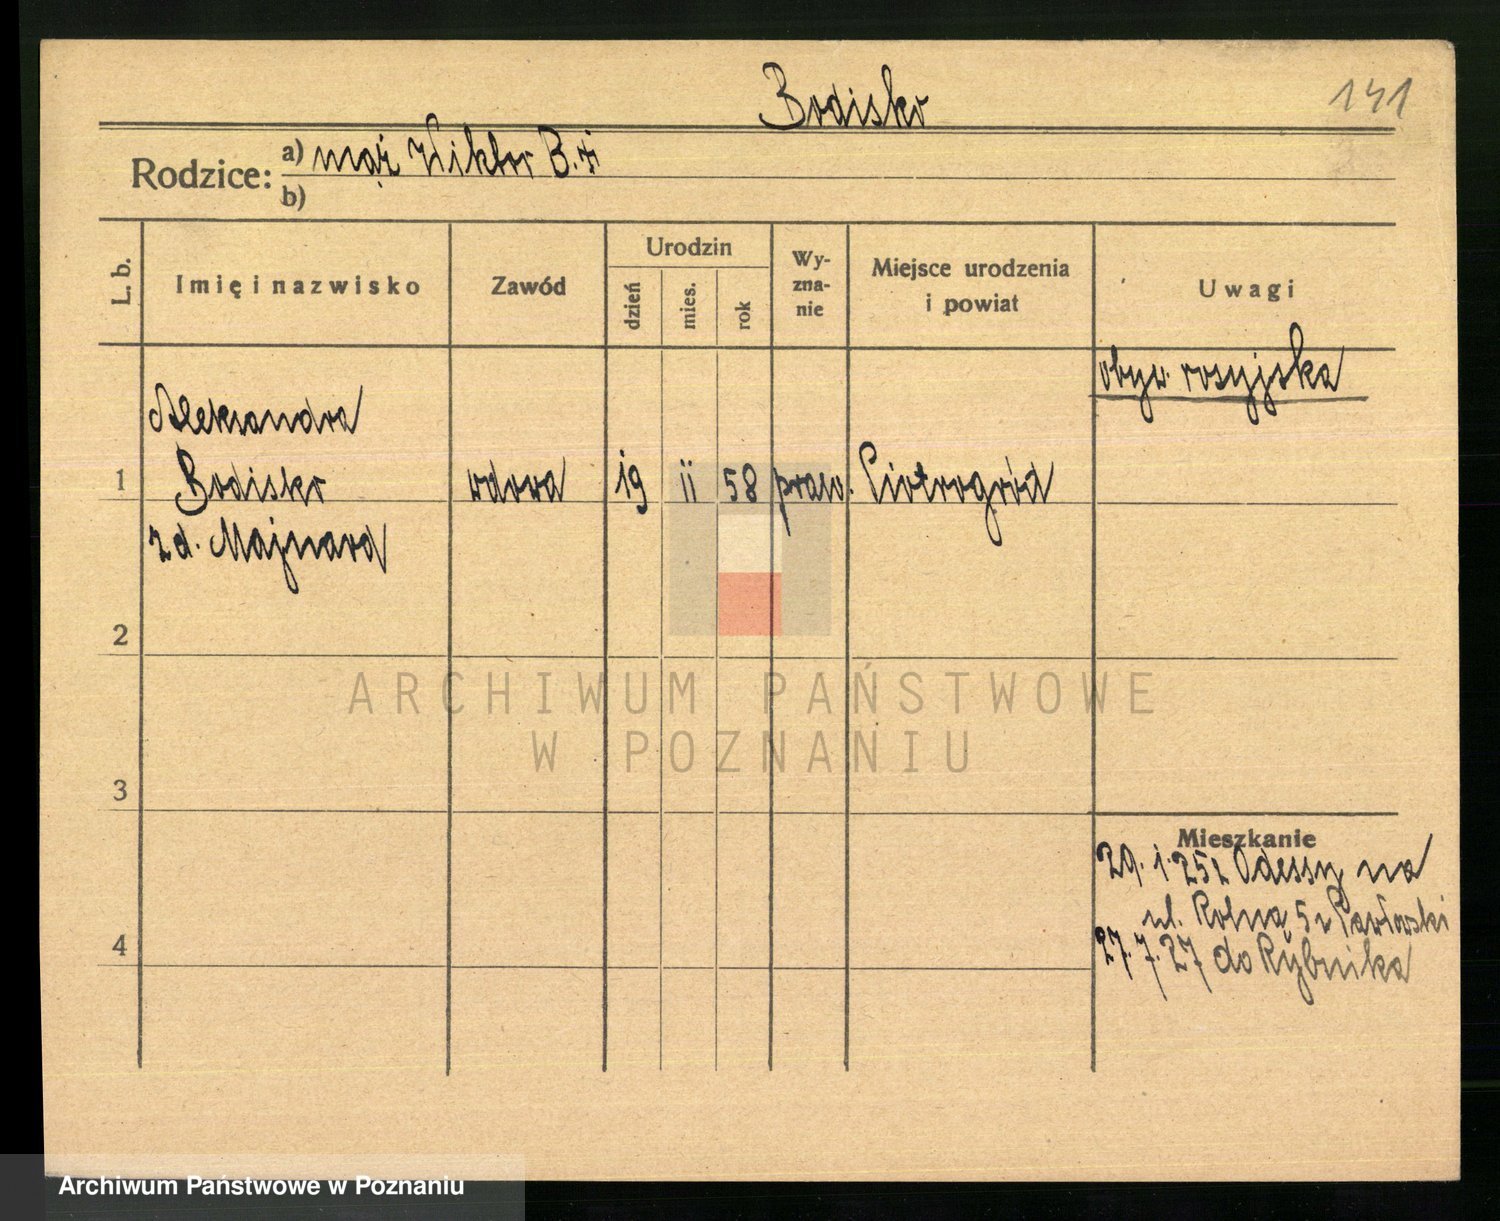 Bodisko
141
Rodzice: a) mąż Wiktor B.
b)
L. b.
Imię i nazwisko
Zawód
Urodzin
dzień
mies.
rok
Wy-
zna-
nie
Miejsce urodzenia
i powiat
Uwagi
obyw. rosyjska
Aleksandra
1 Bodisko wdowa 19 ii 58 praw. Piotrogród
z d. Majnard
2
3
4
Mieszkanie
29. 1. 25 z Odessy na
ul. Rolną 5 z Pawłowski
27. 7. 27 do Rybnika
ARCHIWUM PAŃSTWOWE
W POZNANIU
Archiwum Państwowe w Poznaniu